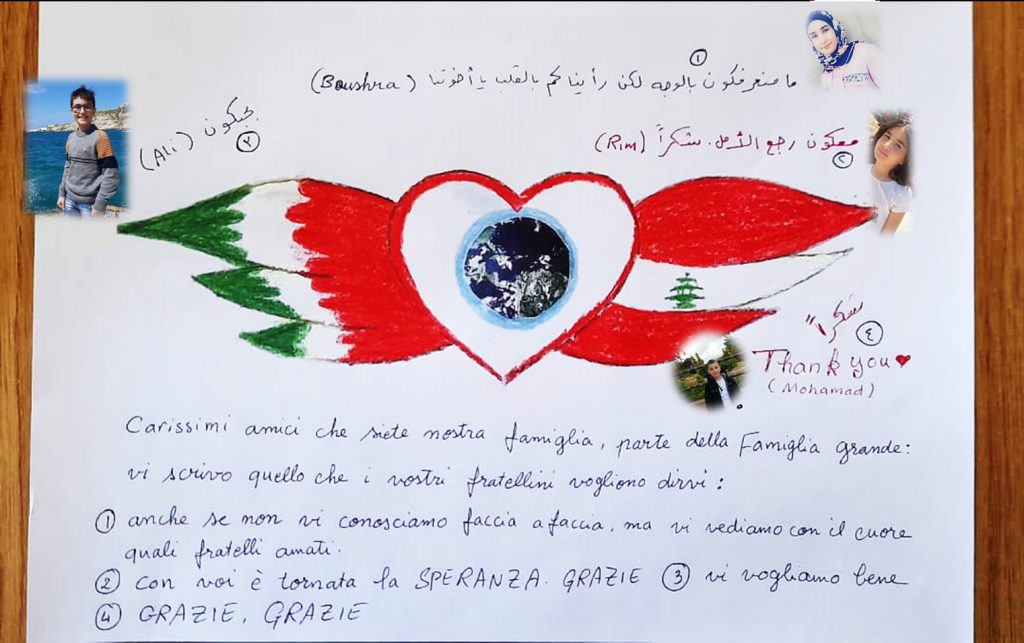 ① ما منعرفكون بالوجه لكن رأيناكم بالقلب يا أخوتنا (Boushra)
بحبكون (Ali) ③
معكون رجع الأمل. شكراً (Rim) ②
شكراً ④
Thank you ♥
(Mohamad)
Carissimi amici che siete nostra famiglia, parte della Famiglia grande:
vi scrivo quello che i vostri fratellini vogliono dirvi:
① anche se non vi conosciamo faccia a faccia, ma vi vediamo con il cuore
quali fratelli amati.
② con voi è tornata la SPERANZA. GRAZIE ③ vi vogliamo bene
④ GRAZIE, GRAZIE